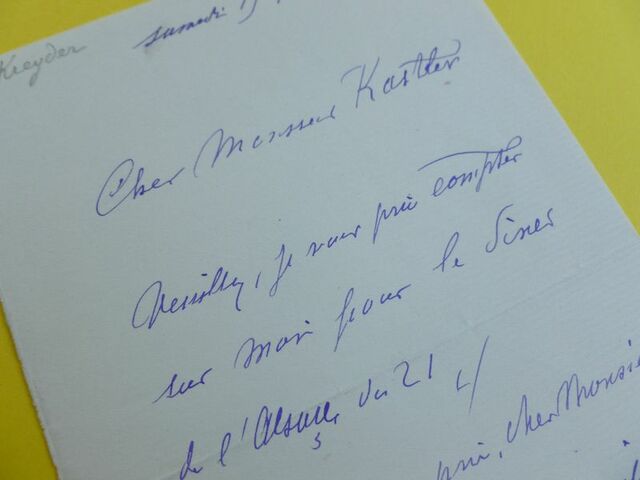 Kreyder
samedi 19
Cher Monsieur Kastler
Veuillez, je vous prie compter
sur moi pour le dîner
de l'Alsace, du 21
prie, cher Monsie